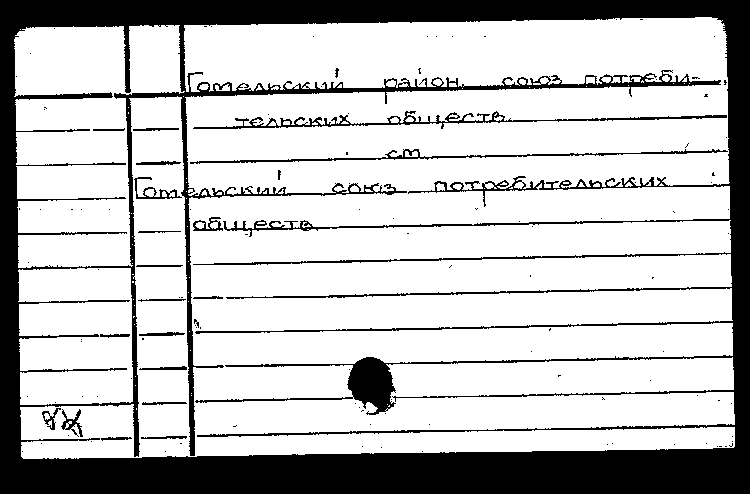 Гомельский район. союз потреби-
тельских обществ.
см
Гомельский союз потребительских
обществ